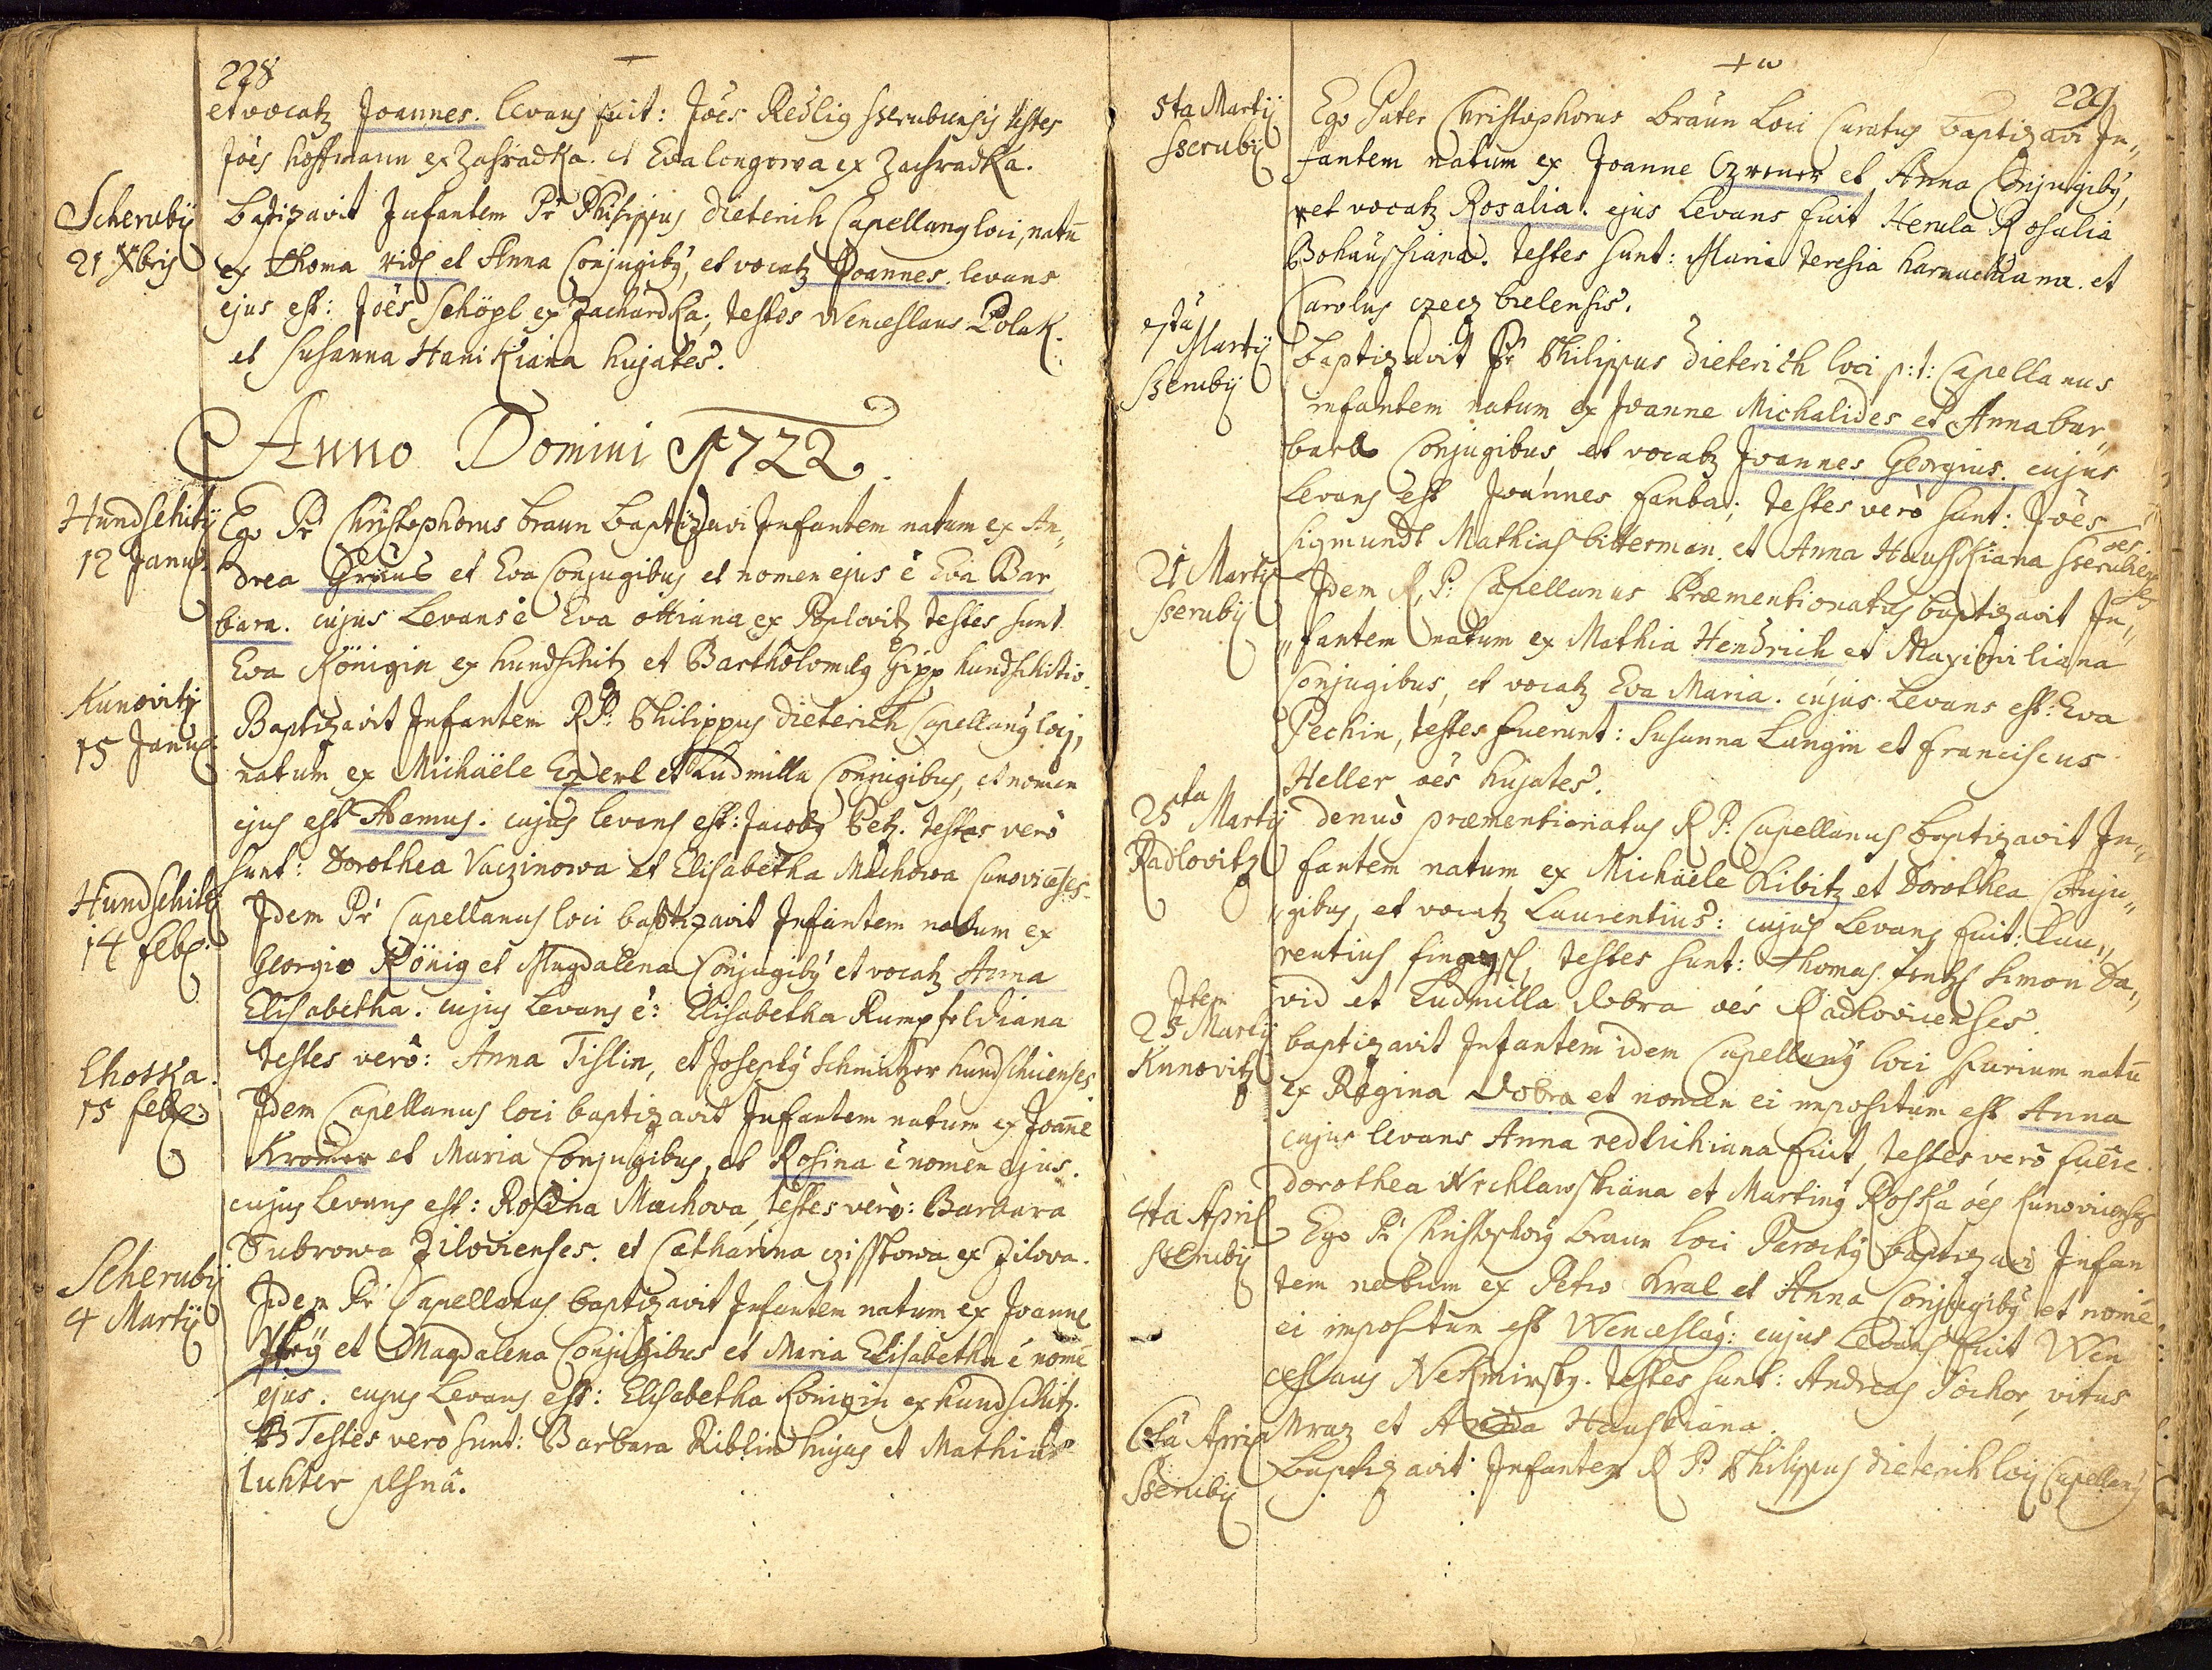 228
et vocatz Joannes. levans fuit: Joes Redlig sserubensis testes
Joes Hoffmann ex Zahradka. et Eva Longowa ex Zachradka.
Scherubÿ
21 Xbris
Batizavit Infantem Pr Philippus Dieterich Capellanq loci, natū
ex Thoma et Anna Conjugibq, et vocatz Joannes. levans
ejus est: Joes Schöpl ex Zachardka; testes Wenceslaus Polak.
et Susanna Hanikiana hujates.
Anno Domini 1722
Hundschitz
12 Januar.
Ego Pr Christophorus Braun Baptizavi Infantem natum ex An„
drea Graus et Eva Conjugibus et nomen ejus ē Eva Bar
bara. cujus Levans ē Eva ottiana ex Poplovitz testes sunt
Eva Königin ex hundschitz et Bartholomeq Gipp hundschitio.
Kunovitz
15 Januar.
Baptizavit Infantem R P: Philippus Dieterich Capellanq locj,
natum ex Michaële Ezerl et Ludmilla Conjugibus, et nomen
ejus est Adamus. cujus levens est: Jacobq Petz. testes verò
sunt: Dorothea Vaczinowa et Elisabetha Machowa cunovicēses.
Hundschitz
14 feb.
Idem Pr Capellanus loci baptizavit Infantem natum ex
Georgio König et Magdalena Conjugibq et vocatz Anna
Elisabetha. cujus Levans ē: Elisabetha Rumpfeldiana
testes verò: Anna Tislin, et Josephq Schmitzer hundschicenses
Lhotka.
15 feb.
Idem Capellanus loci baptizavit Infantem natum ex Joanne
Kromer et Maria Conjugibus, et Rosina ē nomen ejus.
cujus Levans est: Rosina Machova, testes verò: Barbara
Dubrowa Zilovienses. et Catharina czisskowa ex Zilova.
Scherubÿ
4 Martÿ
Idem Pr Capellanus baptizavit Infantem natum ex Joanne
et Magdalena Conjugibus et Maria Elisabetha ē nomē
ejus. cujus Levans est: Elisabetha Königin ex hundschitz.
Testes verò sunt: Barbara Riblin hujas et Mathias
luhter plsnā.
229
5ta Martÿ
sserubÿ
Ego Pater Christophorus Braun Loci Curatus baptizavi In„
fantem natum ex Joanne et Anna Conjugibq,
et vocatz Rosalia. ejus Levans fuit Herula Rosalia
Bohaussiana. testes sunt: Maria Teresia harnachiana. et
Carolus czecz bielensis.
7ma Martÿ
sserubÿ
Baptizavit Pr Philippus Dieterich loci p:t: Capellanus
infantem natum ex Joanne Michalides et Annabar„
bara Conjugibus, et vocatz Joannes Georgius. cujus
Levans est Joannes fanba; testes verò sunt: Joes
Sigmundt Mathias bitterman. et Anna Hausskiana sseruben
oes
ses
21 Martÿ
sserubÿ
Idem R. P: Capellanus Præmentionatus baptizavit In„
„fantem natum ex Mathia Hendrich et Maximiliana
Conjugibus, et vocatz Eva Maria. cujus Levans est: Eva
Pechin, testes fuerunt: Susanna Langin et Franciscus
Heller oēs hujates.
25ta Martÿ
Radlovitz
denuò præmentionatus R P: Capellanus baptizavit In„
fantem natum ex Michaële Kibitz et Dorothea Conju„
„gibus, et vocatz Laurentius: cujus Levans fuit: Lau„
rentius, testes sunt: Thomas Simon Da„
vid et Ludmilla dobra oēs Radlovicenses.
Item
25 Martÿ
Kunovitz
baptizavit Infantem idem Capellanq loci spurium natū
ex Regina Dobra et nomen ei impositum est Anna
cujus levans Anna redlichiana fuit, testes verò fuēre
Dorothea Wrchlawskiana et Martinq Roska oēs Kunovicenses
4ta April
sserubÿ
Ego Pr Christophorq Braun loci Parochq baptizavi Infan
tem natum ex Petro Kral et Anna Conjugibq et nomē
ei impositum est Wenceslaq: cujus Levans fuit Wen
ceslaus Nekmirsky. testes sunt: Andreas Tochor, vitus
Mraz et Hauskiana.
6ta April
sserubÿ
Baptizavit Infantem R P: Philippus Dieterich locj Capellanq